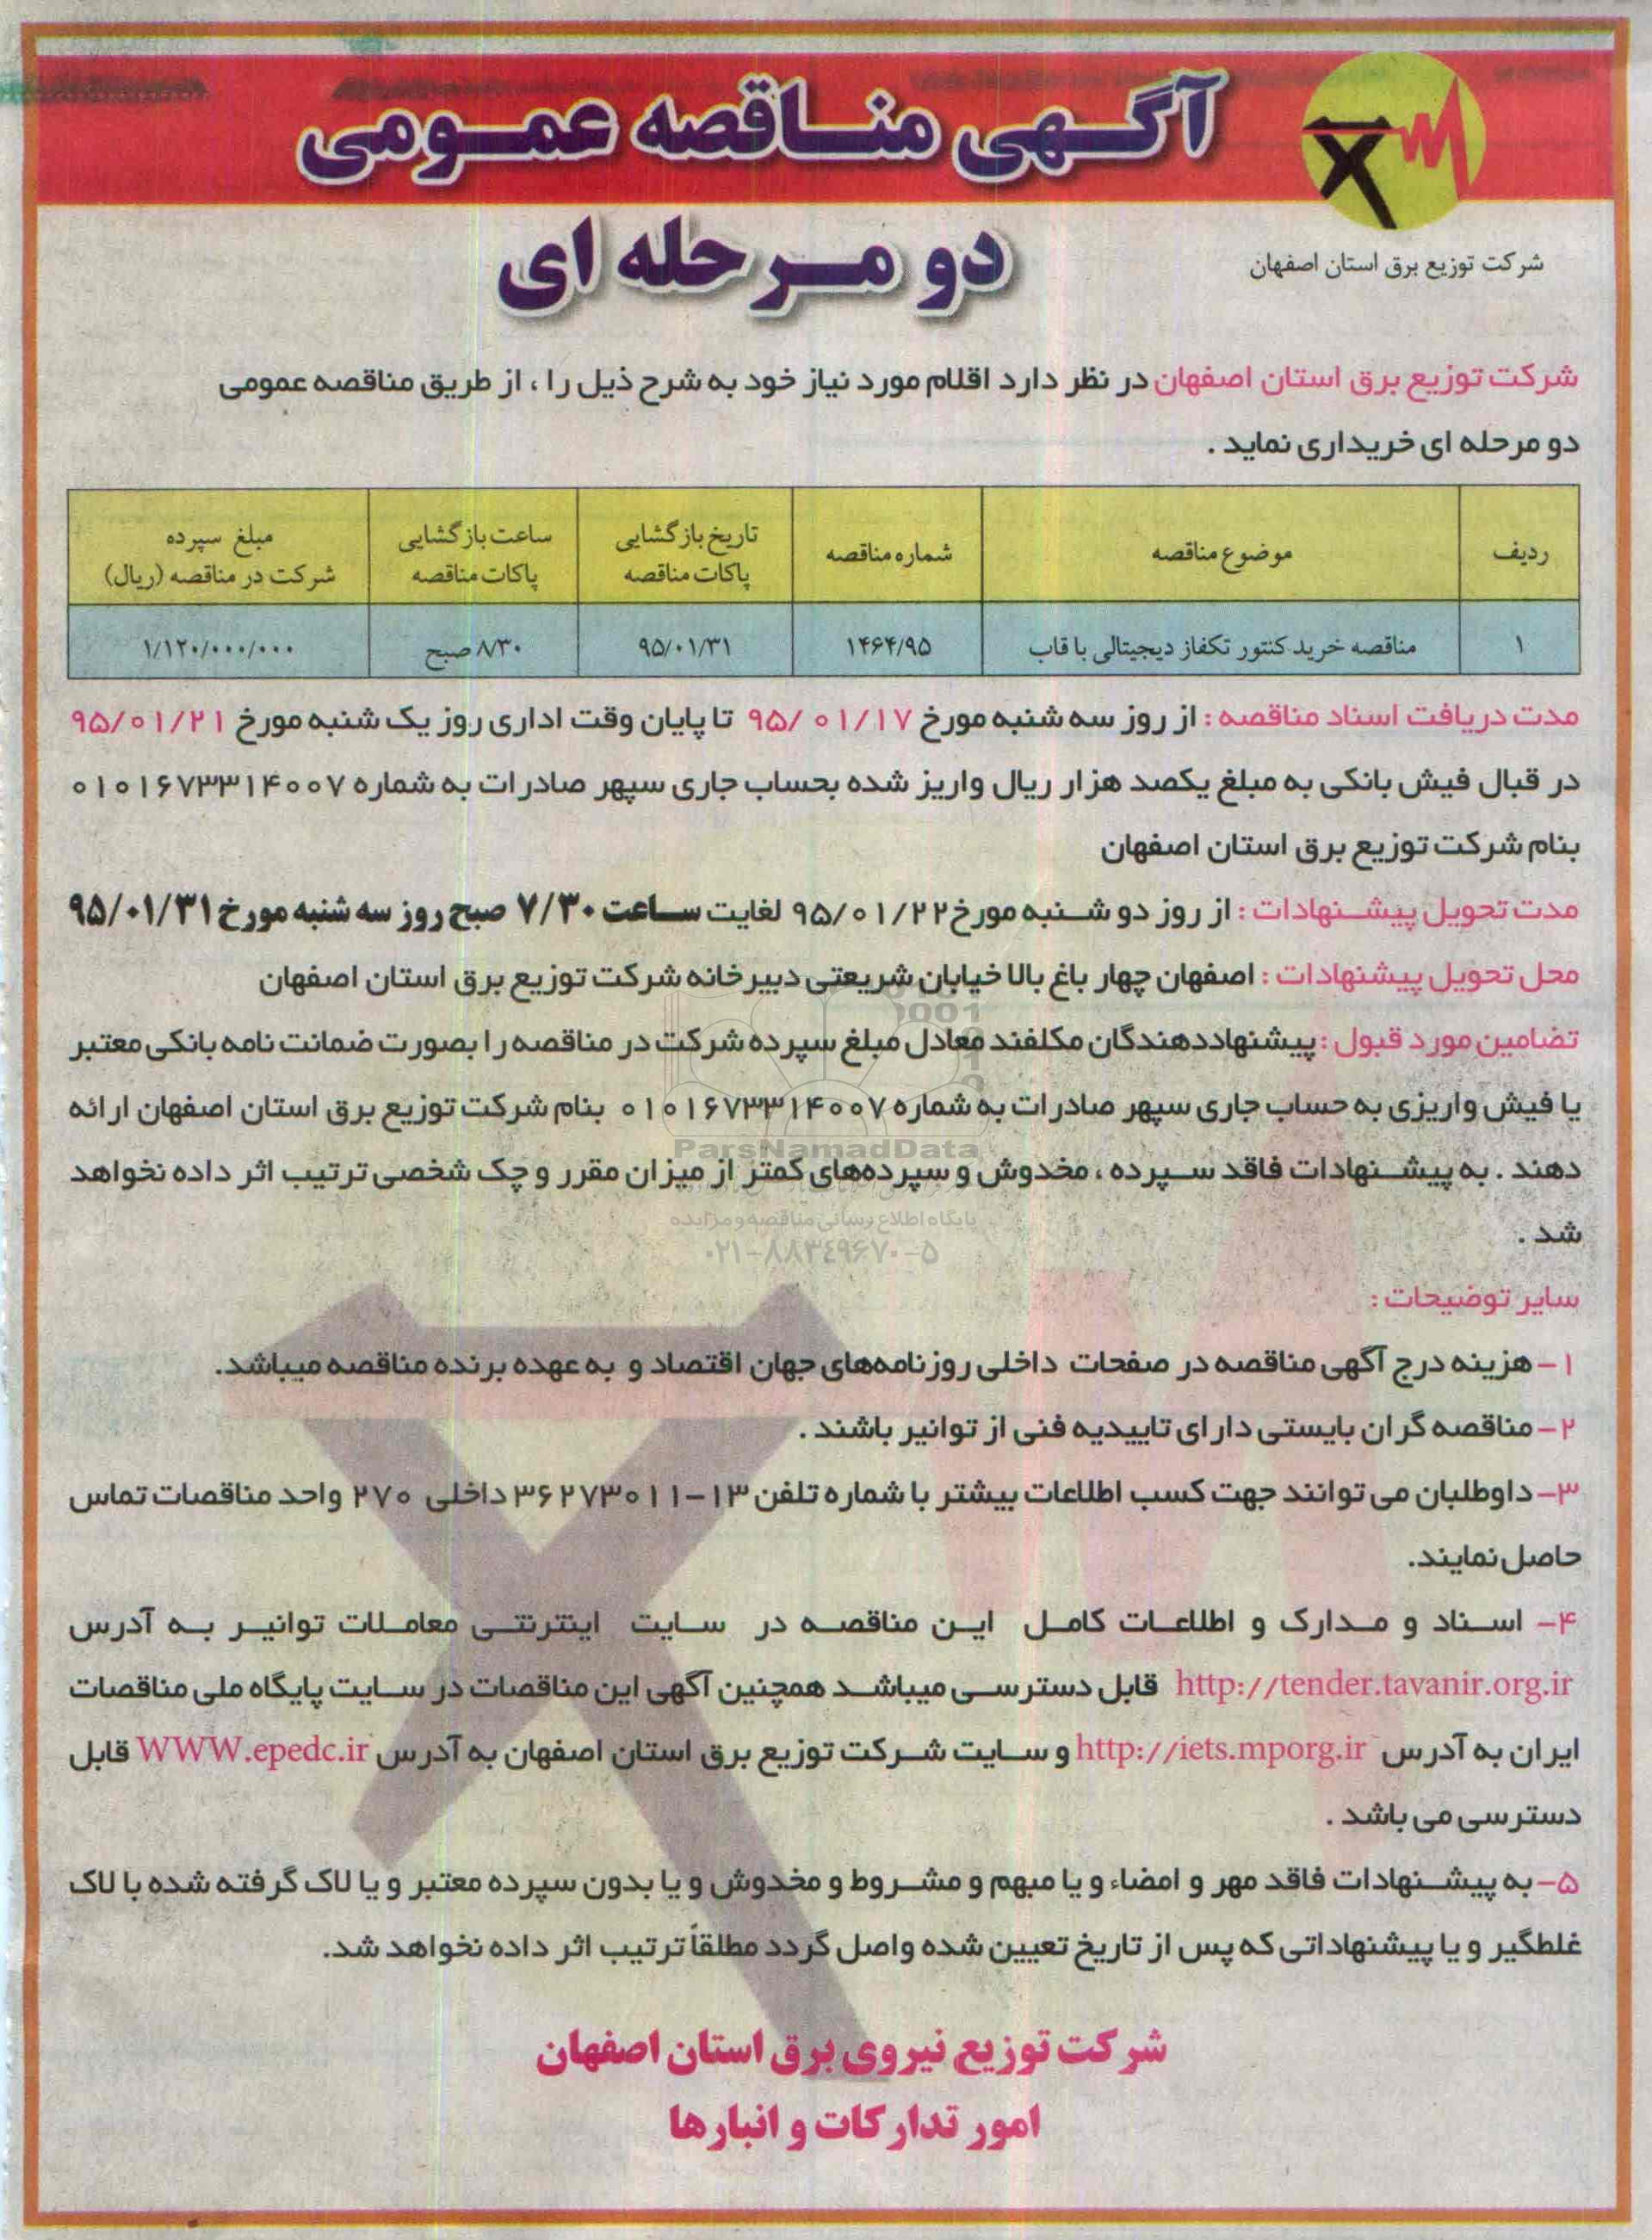 آگهی مناقصه عمومی
دو مرحله ای
شرکت توزیع برق استان اصفهان
شرکت توزیع برق استان اصفهان در نظر دارد اقلام مورد نیاز خود به شرح ذیل را ، از طریق مناقصه عمومی
دو مرحله ای خریداری نماید .
ردیف موضوع مناقصه شماره مناقصه تاریخ بازگشایی پاکات مناقصه ساعت بازگشایی پاکات مناقصه مبلغ سپرده شرکت در مناقصه (ریال)
۱ مناقصه خرید کنتور تکفاز دیجیتالی با قاب ۱۴۶۴/۹۵ ۹۵/۰۱/۳۱ ۸/۳۰ صبح ۱/۱۲۰/۰۰۰/۰۰۰
مدت دریافت اسناد مناقصه : از روز سه شنبه مورخ ۹۵/۰۱/۱۷ تا پایان وقت اداری روز یک شنبه مورخ ۹۵/۰۱/۲۱
در قبال فیش بانکی به مبلغ یکصد هزار ریال واریز شده بحساب جاری سپهر صادرات به شماره ۰۱۰۱۶۷۳۳۱۴۰۰۷
بنام شرکت توزیع برق استان اصفهان
مدت تحویل پیشنهادات : از روز دو شنبه مورخ ۹۵/۰۱/۲۲ لغایت ساعت ۷/۳۰ صبح روز سه شنبه مورخ ۹۵/۰۱/۳۱
محل تحویل پیشنهادات : اصفهان چهار باغ بالا خیابان شریعتی دبیرخانه شرکت توزیع برق استان اصفهان
تضامین مورد قبول : پیشنهاددهندگان مکلفند معادل مبلغ سپرده شرکت در مناقصه را بصورت ضمانت نامه بانکی معتبر
یا فیش واریزی به حساب جاری سپهر صادرات به شماره ۰۱۰۱۶۷۳۳۱۴۰۰۷ بنام شرکت توزیع برق استان اصفهان ارائه
دهند . به پیشنهادات فاقد سپرده ، مخدوش و سپرده‌های کمتر از میزان مقرر و چک شخصی ترتیب اثر داده نخواهد
شد .
ParsNamadData
پایگاه اطلاع رسانی مناقصه و مزایده
۰۲۱-۸۸۳۴۹۶۷۰-۵
سایر توضیحات :
۱- هزینه درج آگهی مناقصه در صفحات داخلی روزنامه‌های جهان اقتصاد و به عهده برنده مناقصه میباشد.
۲- مناقصه گران بایستی دارای تاییدیه فنی از توانیر باشند .
۳- داوطلبان می توانند جهت کسب اطلاعات بیشتر با شماره تلفن ۱۳-۳۶۲۷۳۰۱۱ داخلی ۲۷۰ واحد مناقصات تماس
حاصل نمایند.
۴- اسناد و مدارک و اطلاعات کامل این مناقصه در سایت اینترنتی معاملات توانیر به آدرس
http://tender.tavanir.org.ir قابل دسترسی میباشد همچنین آگهی این مناقصات در سایت پایگاه ملی مناقصات
ایران به آدرس http://iets.mporg.ir و سایت شرکت توزیع برق استان اصفهان به آدرس WWW.epedc.ir قابل
دسترسی می باشد .
۵- به پیشنهادات فاقد مهر و امضاء و یا مبهم و مشروط و مخدوش و یا بدون سپرده معتبر و یا لاک گرفته شده با لاک
غلطگیر و یا پیشنهاداتی که پس از تاریخ تعیین شده واصل گردد مطلقاً ترتیب اثر داده نخواهد شد.
شرکت توزیع نیروی برق استان اصفهان
امور تدارکات و انبارها